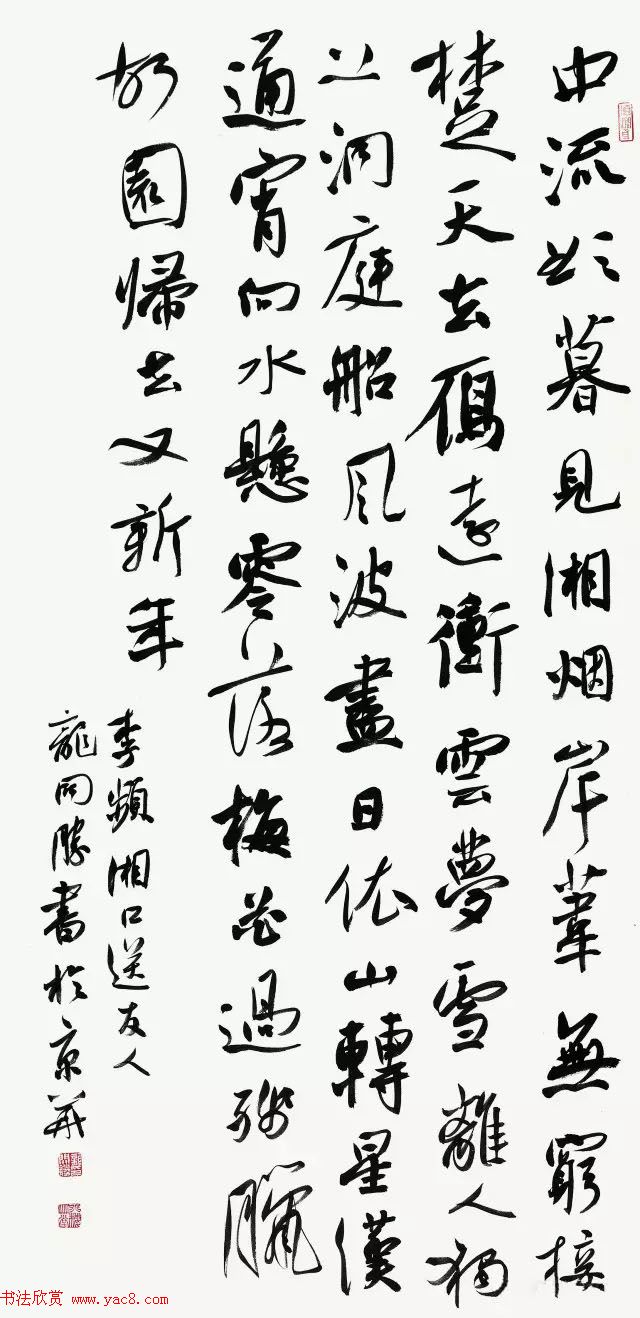 中流欲暮見湘烟岸葦無窮接
楚天去雁遠衝雲夢雪離人獨
上洞庭船風波盡日依山轉星漢
通宵向水懸零落梅花過殘臘
故園歸去又新年
李頻湘口送友人
龍開勝書於京華
书法欣赏 www.yac8.com